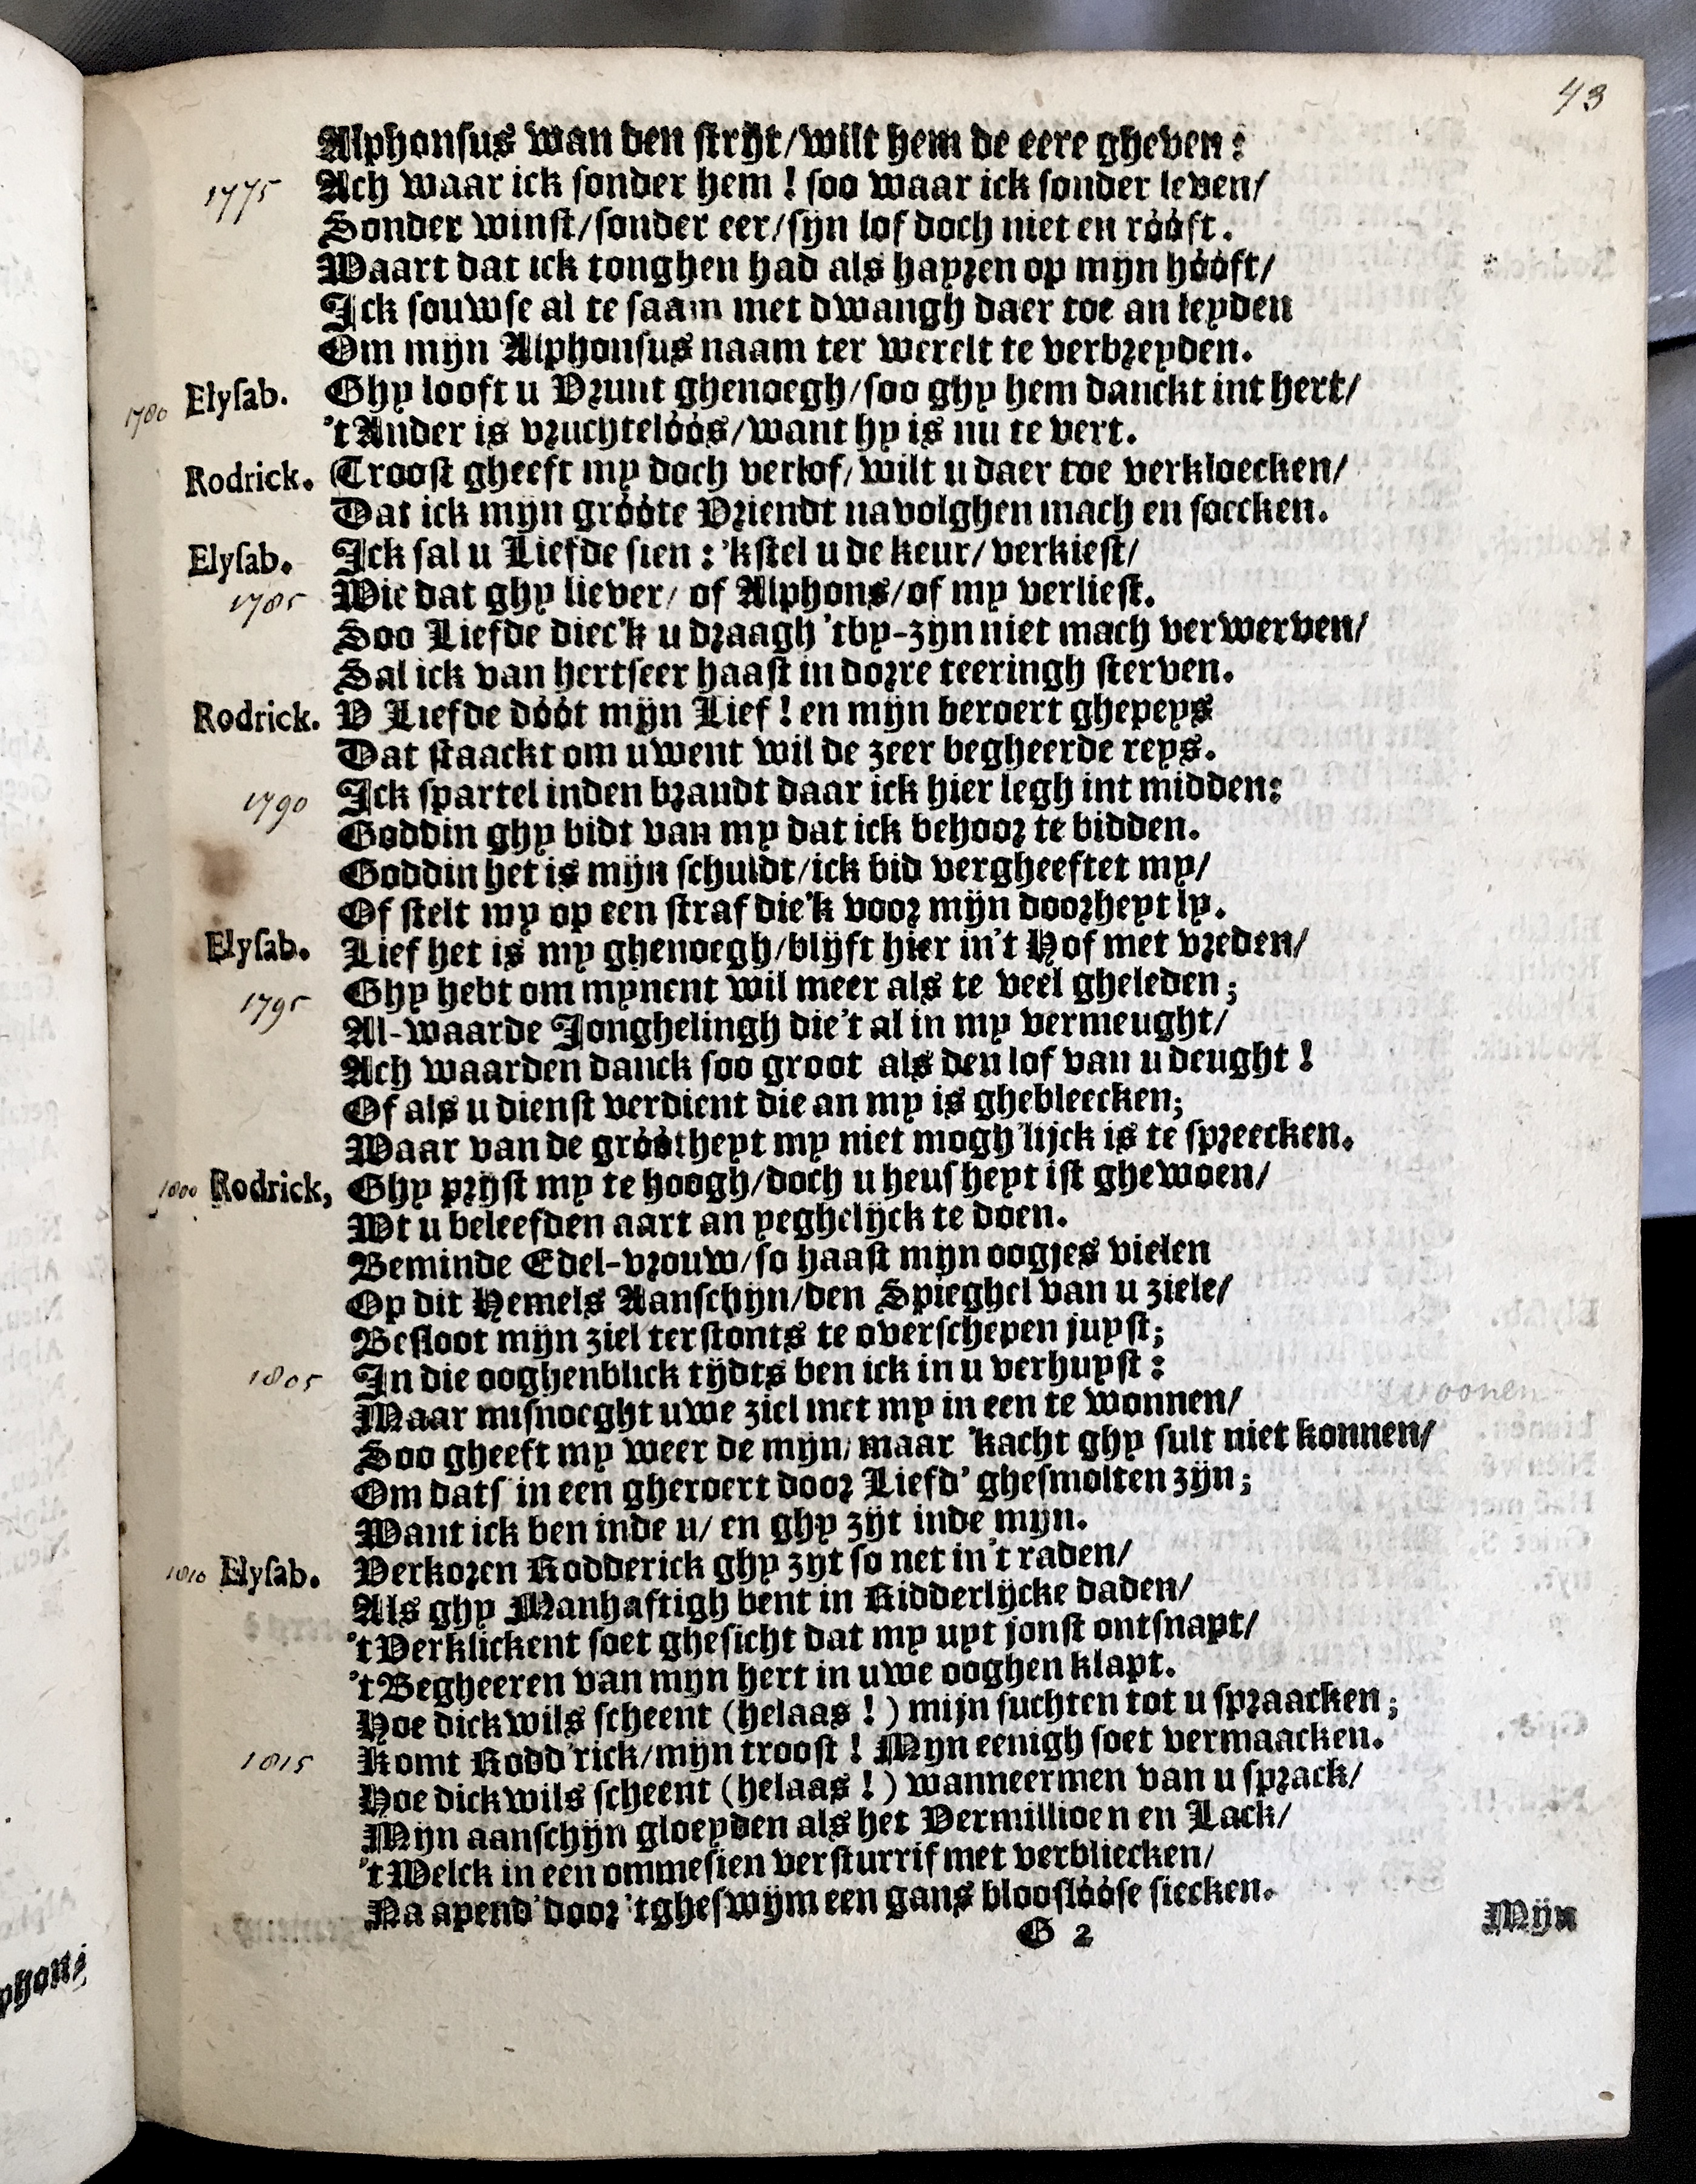 43
Alphonsus wan den strijt/wilt hem de eere gheven:
1775 Ach waar ick sonder hem! soo waar ick sonder leven/
Sonder winst/sonder eer/sijn lof doch niet en róóft.
Waart dat ick tonghen had als hayren op mijn hóóft/
Ick souwse al te saam met dwangh daer toe an leyden
Om mijn Alphonsus naam ter werelt te verbreyden.
1780 Elysab. Ghy looft u Vrunt ghenoegh/soo ghy hem danckt int hert/
't Ander is vruchtelóós/want hy is nu te vert.
Rodrick. Troost gheeft my doch verlof/wilt u daer toe verkloecken/
Dat ick mijn gróóte Vriendt navolghen mach en soecken.
Elysab. Ick sal u Liefde sien: 'kstel u de keur/verkiest/
1785 Wie dat ghy liever/of Alphons/of my verliest.
Soo Liefde diec'k u draagh 'tby-zijn niet mach verwerven/
Sal ick van hertseer haast in dorre teeringh sterven.
Rodrick. V Liefde dóót mijn Lief! en mijn beroert ghepeys
Dat staackt om uwent wil de zeer begheerde reys.
1790 Ick spartel inden brandt daar ick hier legh int midden:
Goddin ghy bidt van my dat ick behoor te bidden.
Goddin het is mijn schuldt/ick bid vergheeftet my/
Of stelt my op een straf die'k voor mijn doorheyt ly.
Elysab. Lief het is my ghenoegh/blijft hier in't Hof met vreden/
1795 Ghy hebt om mynent wil meer als te veel gheleden;
Al-waarde Jonghelingh die't al in my vermeught/
Ach waarden danck soo groot als den lof van u deught!
Of als u dienst verdient die an my is ghebleecken;
Waar van de gróótheyt my niet mogh'lijck is te spreecken.
1800 Rodrick, Ghy prijst my te hoogh/doch u heusheyt ist ghewoen/
Wt u beleefden aart an yeghelijck te doen.
Beminde Edel-vrouw/so haast mijn oogjes vielen
Op dit Hemels Aanschijn/den Spieghel van u ziele/
Besloot mijn ziel terstonts te overschepen juyst;
1805 In die ooghenblick tijdts ben ick in u verhuyst:
Maar misnoeght uwe ziel met my in een te wonnen/
Soo gheeft my weer de mijn/maar 'kacht ghy sult niet konnen/
Om dats in een gheroert door Liefd' ghesmolten zijn;
Want ick ben inde u/en ghy zijt inde mijn.
1810 Elysab. Verkoren Rodderick ghy zyt so net in't raden/
Als ghy Manhaftigh bent in Ridderlijcke daden/
't Verklickent soet ghesicht dat my uyt jonst ontsnapt/
't Begheeren van mijn hert in uwe ooghen klapt.
Hoe dickwils scheent (helaas!) mijn suchten tot u spraacken;
1815 Komt Rodd'rick/mijn troost! Mijn eenigh soet vermaacken.
Hoe dickwils scheent (helaas!) wanneermen van u sprack/
Mijn aanschijn gloeyden als het Vermillioen en Lack/
't Welck in een ommesien versturrif met verbliecken/
Na apend' door 'tgheswijm een gans bloosloóse siecken.
G 2
Mijn